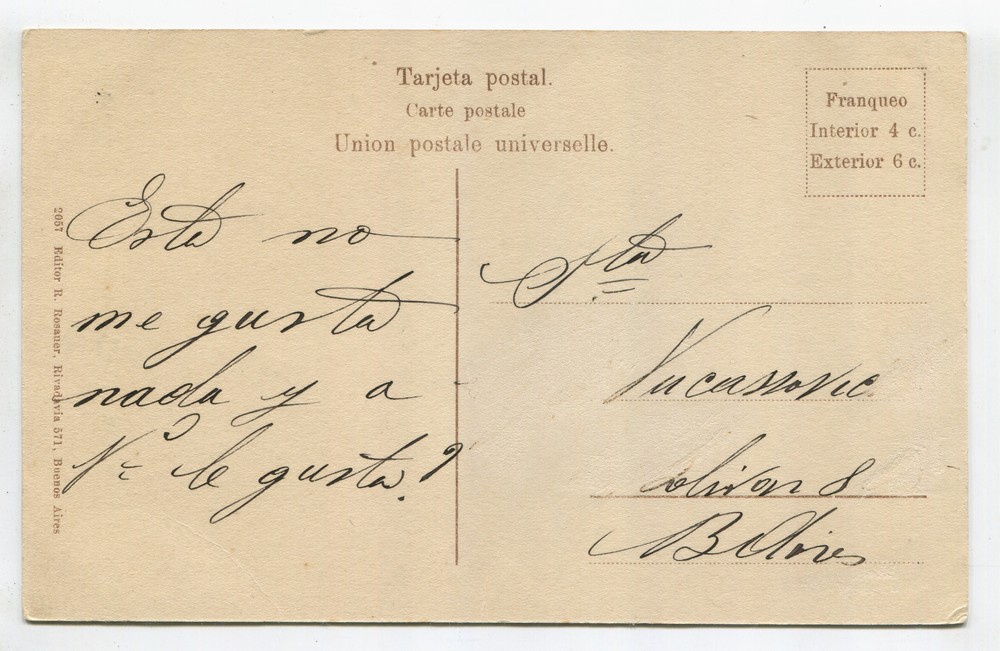 Tarjeta postal.
Carte postale
Union postale universelle.
Franqueo
Interior 4 c.
Exterior 6 c.
2057 Editor R. Rosauer, Rivadavia 571, Buenos Aires
Esta no
me gusta
nada y a
Vc le gusta?
Sta
Vucassovic
olivar 8
B Aires